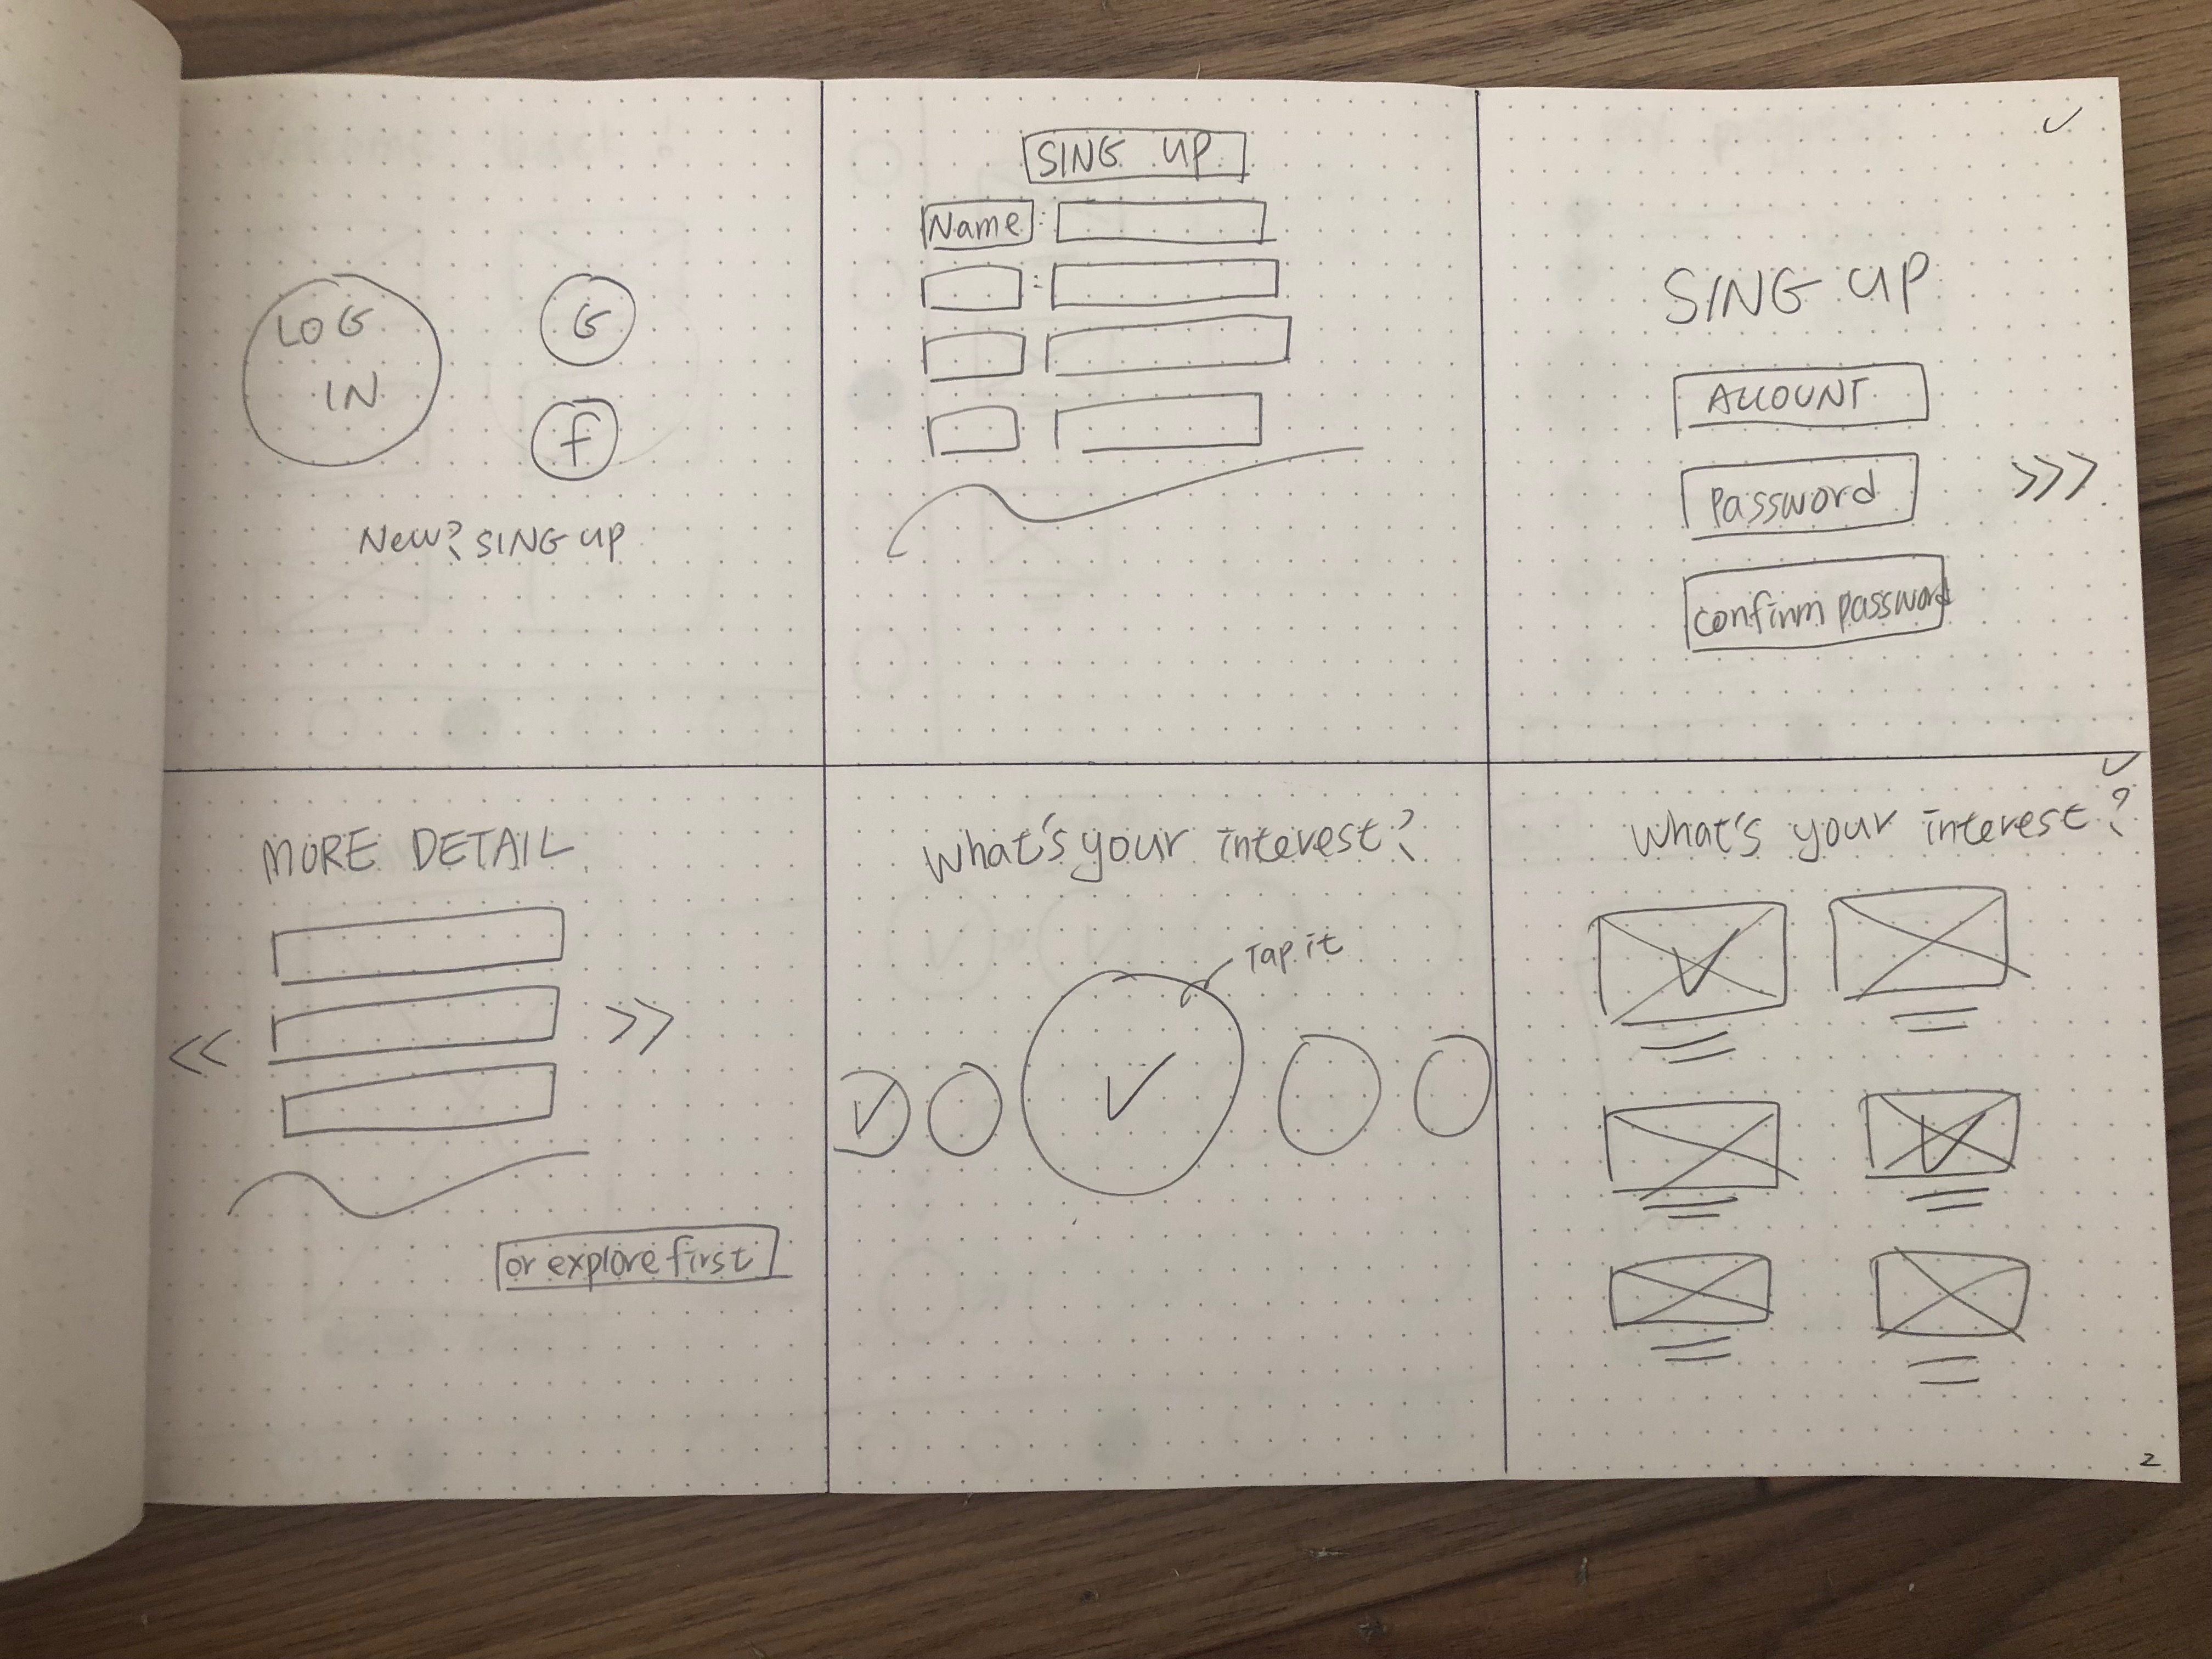 LOG
IN
G
f
New? SING UP
SING UP
Name :
:
SING UP
ACCOUNT
Password
>>>
confirm password
MORE DETAIL
<< >>
or explore first
What's your interest?
Tap it
What's your interest?
2